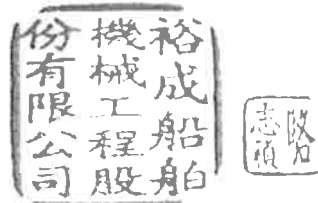 裕成船舶
機械工程股
份有限公司
志禎